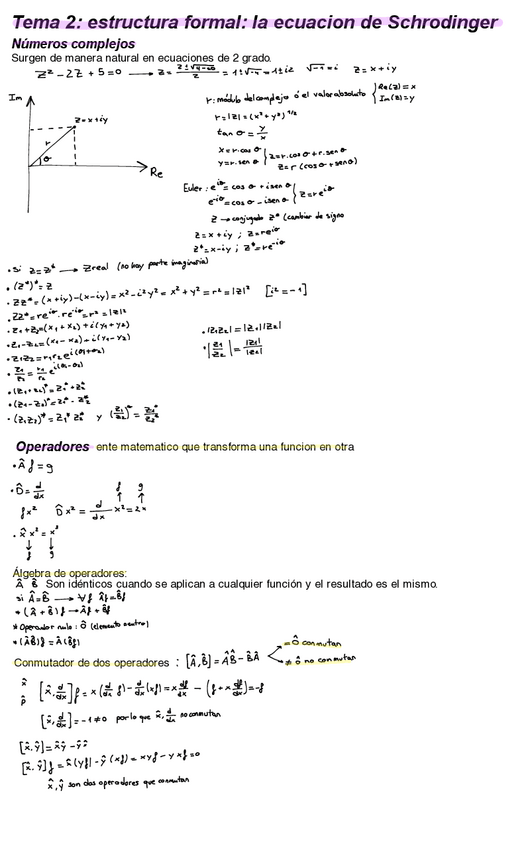 Tema 2: estructura formal: la ecuacion de Schrodinger
Números complejos
Surgen de manera natural en ecuaciones de 2 grado.
z² - 2z + 5 = 0 → z = = 1±√-4 = 1±i2 √-1 = i z = x+iy
Im
z=x+iy
r
θ
Re
r: módulo del complejo ó el valor absoluto { Re(z)=x
Im(z)=y
r=|z|=(x²+y²)^1/2
tan θ = y/x
x=r·cos θ
y=r·sen θ } z=r·cos θ+r·sen θ
z=r(cos θ+senθ)
Euler: e^iθ=cos θ+isenθ
e^-iθ=cos θ-isenθ } z=re^iθ
z → conjugado z* (cambiar de signo
z=x+iy ; z=re^iθ
z*=x-iy ; z*=re^-iθ
• si z=z* → z real (no hay parte imaginaria)
• (z*)*=z
• zz*=(x+iy)-(x-iy)=x²-i²y²=x²+y²=r²=|z|² [i²=-1]
• zz*=re^iθ·re^-iθ=r²=|z|²
• z₁+z₂=(x₁+x₂)+i(y₁+y₂)
• z₁-z₂=(x₁-x₂)+i(y₁-y₂)
• z₁z₂=r₁r₂e^i(θ1+θ2)
• z₁/z₂=r₁/r₂ e^i(θ1-θ2)
• (z₁+z₂)*=z₁*+z₂*
• (z₁-z₂)*=z₁*-z₂*
• (z₁z₂)*=z₁* z₂* y (z₁/z₂)*=z₁*/z₂*
• |z₁z₂|=|z₁||z₂|
• |z₁/z₂|=|z₁|/|z₂|
Operadores ente matematico que transforma una funcion en otra
• Â f = g
• D̂ = d/dx
f g
fx² D̂x² = d/dx x²=2x
• x̂ x² = x³
f g
Álgebra de operadores:
Â B̂ Son idénticos cuando se aplican a cualquier función y el resultado es el mismo.
si Â=B̂ → ∀f Âf=B̂f
* (Â+B̂)f → Âf+B̂f
* Operador nulo: Ô (elemento neutro)
* (ÂB̂)f=Â(B̂f)
Conmutador de dos operadores : [Â,B̂]=ÂB̂-B̂Â
=Ô conmutan
≠Ô no conmutan
x̂
p̂
[x̂,d/dx]f=x(d/dx f)-d/dx(xf)=x df/dx-(f+x df/dx)=-f
[x̂,d/dx]=-1≠0 por lo que x̂,d/dx no conmutan
[x̂,ŷ]=x̂ŷ-ŷx̂
[x̂,ŷ]f=x̂(yf)-ŷ(xf)=xyf-yxf=0
x̂,ŷ son dos operadores que conmutan